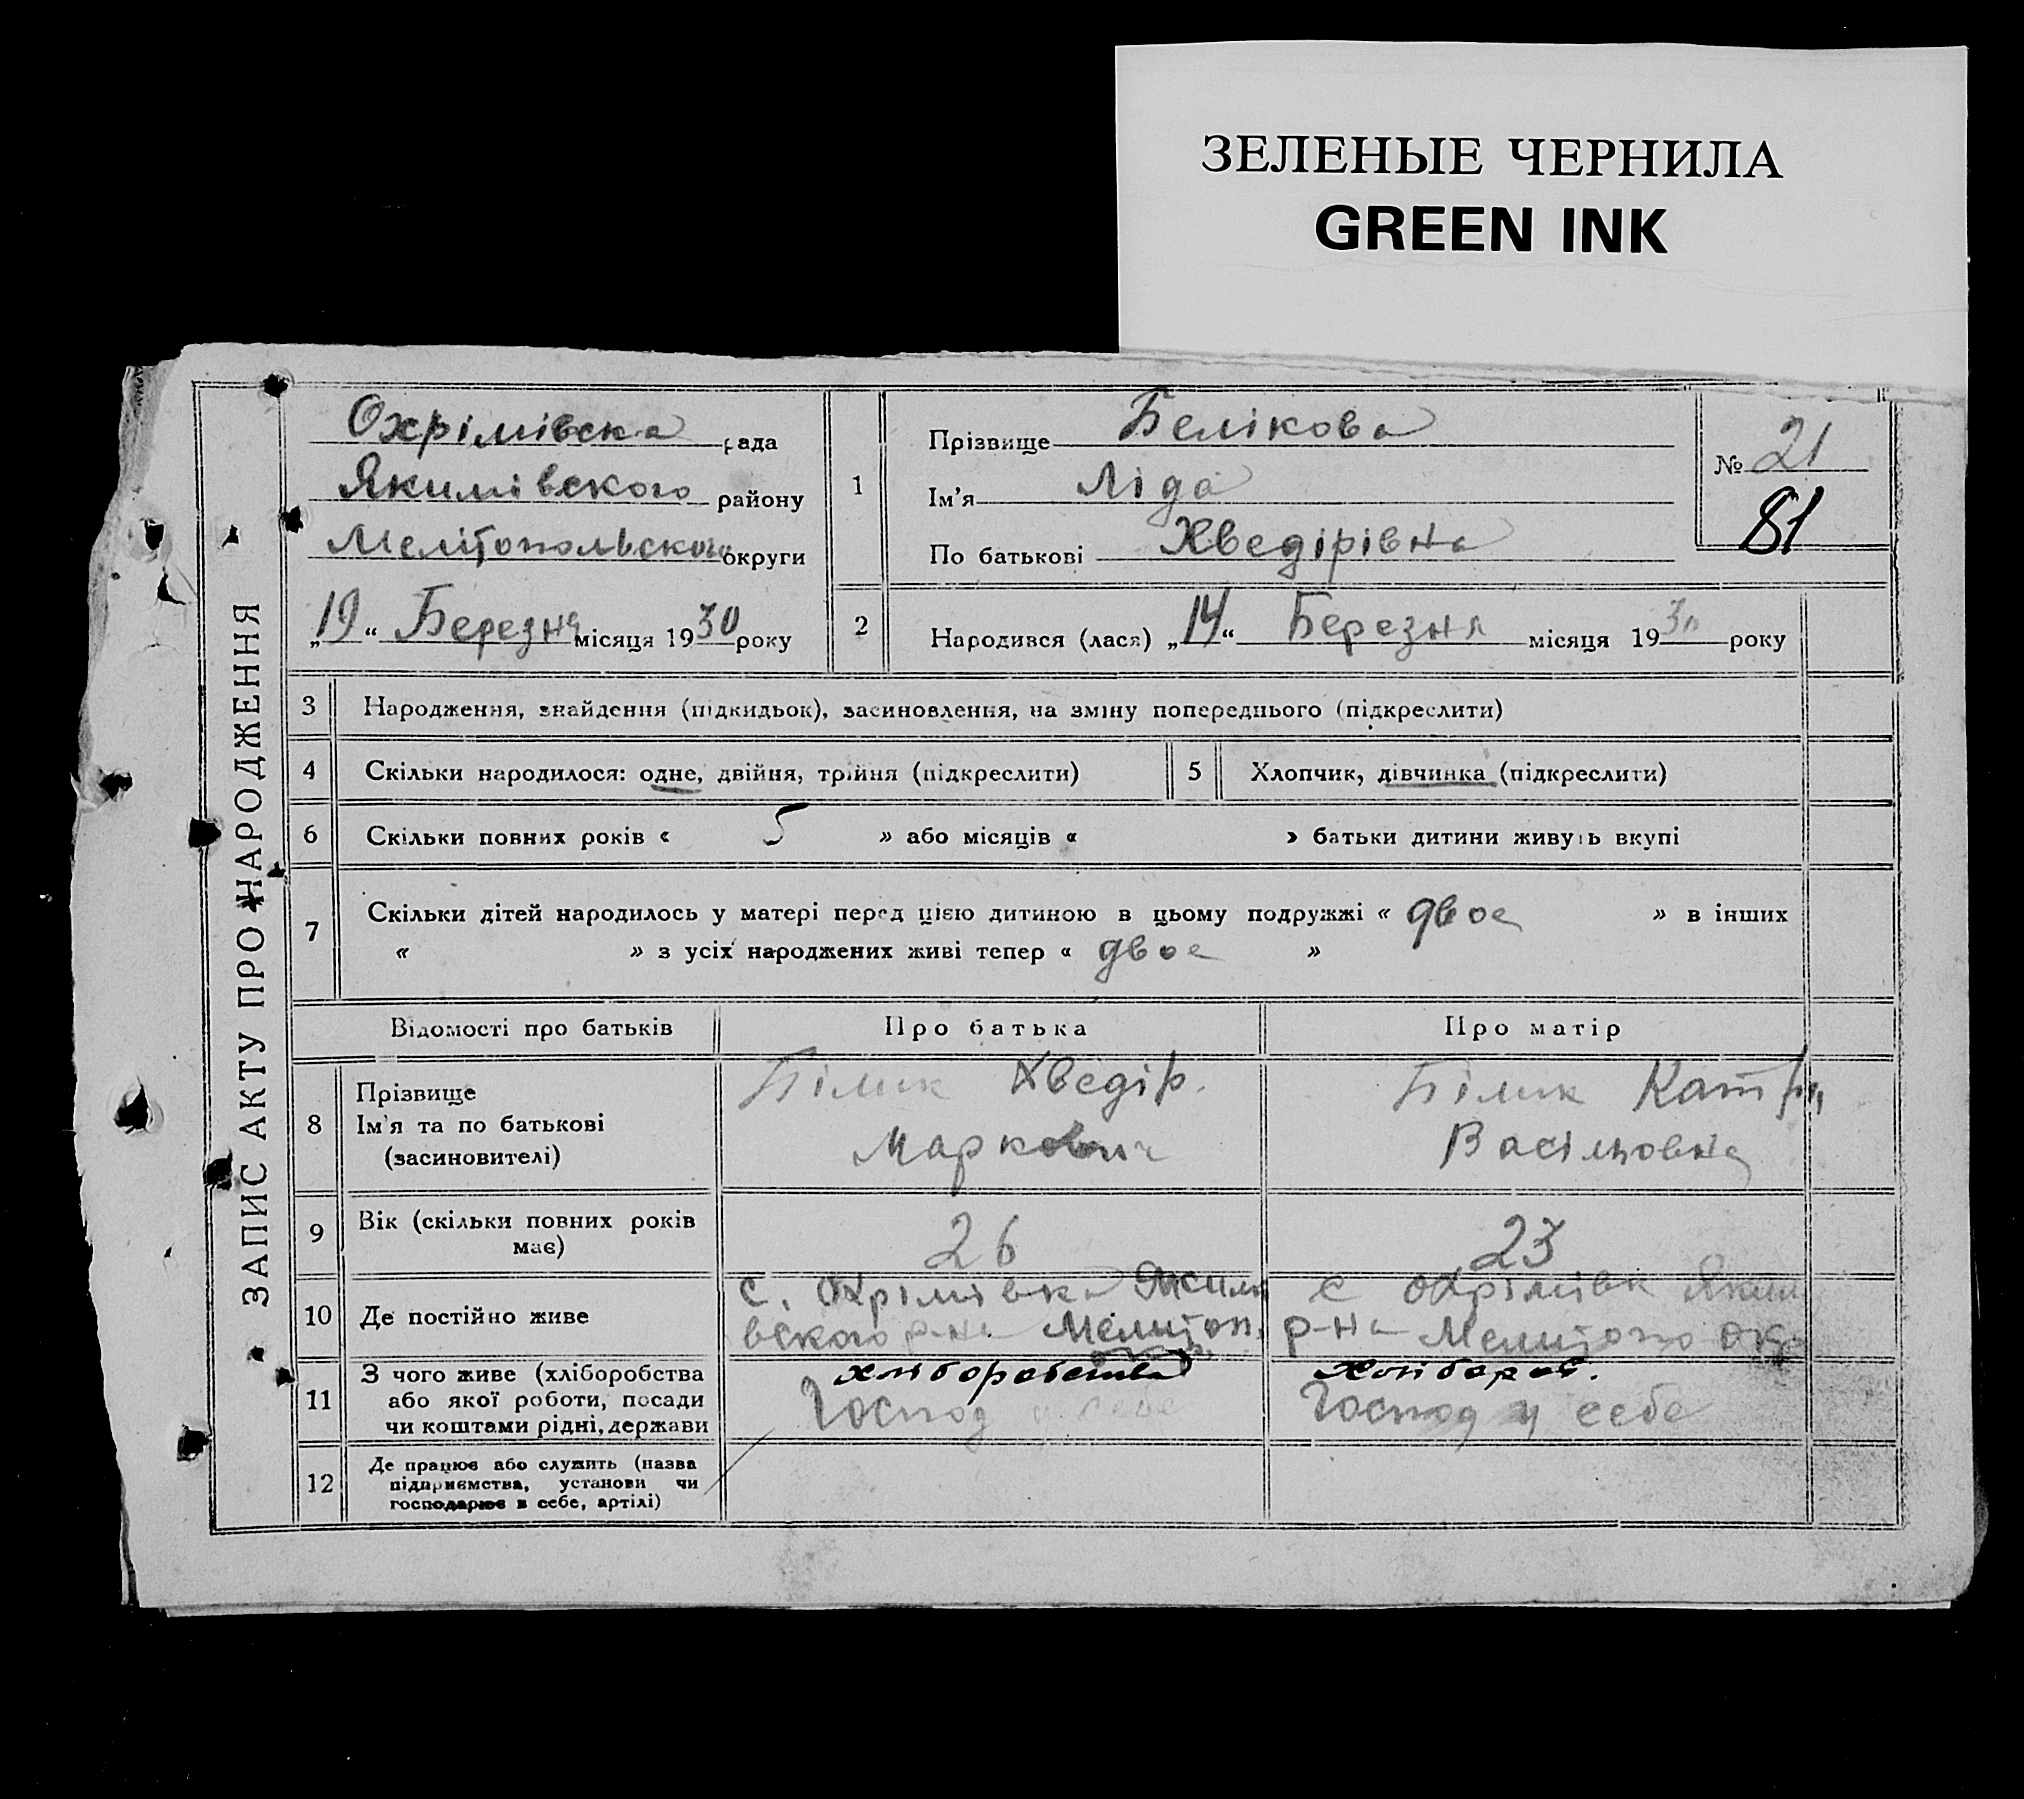 ЗЕЛЕНЫЕ ЧЕРНИЛА
GREEN INK
ЗАПИС АКТУ ПРО НАРОДЖЕННЯ
Охрімівска рада
Якимівского району
Мелітопольского округи
„19“ Березня місяця 1930 року
1
Прізвище Белікова
Ім'я Ліда
По батькові Хведірівна
№ 21
81
2
Народився (лася) „14“ Березня місяця 1930 року
3 Народження, знайдення (підкидьок), засиновлення, на зміну попереднього (підкреслити)
4 Скільки народилося: одне, двійня, трійня (підкреслити) 5 Хлопчик, дівчинка (підкреслити)
6 Скільки повних років « 5 » або місяців « » батьки дитини живуть вкупі
7 Скільки дітей народилось у матері перед цією дитиною в цьому подружжі « двое » в інших
« » з усіх народжених живі тепер « двое »
Відомості про батьків Про батька Про матір
8 Прізвище
Ім'я та по батькові
(засиновителі)
Білик Хведір.
Маркович
Білик Катря
Васілювна
9 Вік (скільки повних років
має)
26
23
10 Де постійно живе
с. Охрімівка Якимі
вского р-на Мелитоп.
с Охрімівк Яким
р-на Мелитопо окр
11 З чого живе (хліборобства
або якої роботи, посади
чи коштами рідні, держави
хліборобства
Господ у себе
хлібороб.
Господ у себе
12 Де працює або служить (назва
підприємства, установи чи
господарює в себе, артілі)